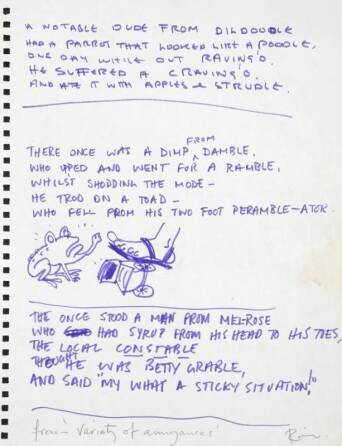 A NOTABLE DUDE FROM DILDOODLE
HAD A PARROT THAT LOOKED LIKE A POODLE,
ONE DAY WHILE OUT RAVING'D.
HE SUFFERED A CRAVING'D.
AND ATE IT WITH APPLES & STRUDLE.
THERE ONCE WAS A DIMP FROM DAMBLE,
WHO UPED AND WENT FOR A RAMBLE,
WHILST SHODDING THE MODE -
HE TROD ON A TOAD -
WHO FELL FROM HIS TWO FOOT PERAMBLE-ATOR.
THE ONCE STOOD A MAN FROM MELROSE
WHO HAD SYRUP FROM HIS HEAD TO HIS TIES,
THE LOCAL CONSTABLE
THOUGHT HE WAS BETTY GRABLE,
AND SAID "MY WHAT A STICKY SITUATION!"
from 'Variety of annoyances'